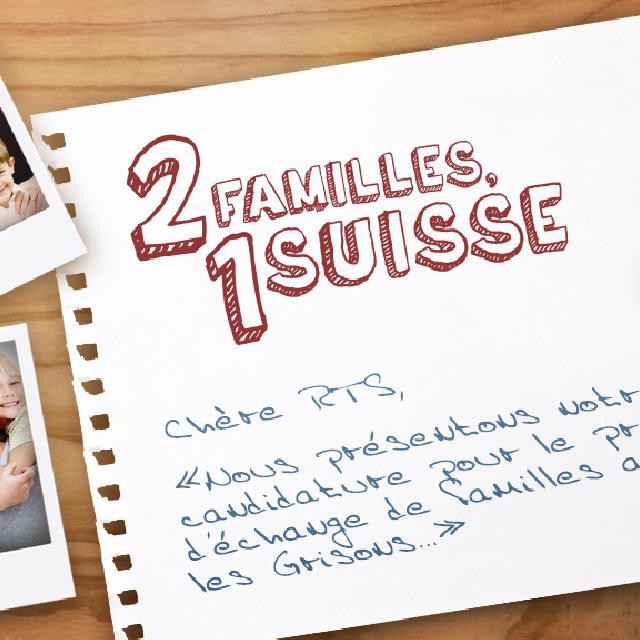 2 FAMILLES,
1 SUISSE
Chère RTS,
«Nous présentons notr
candidature pour le pr
d'échange de familles a
les Grisons...»